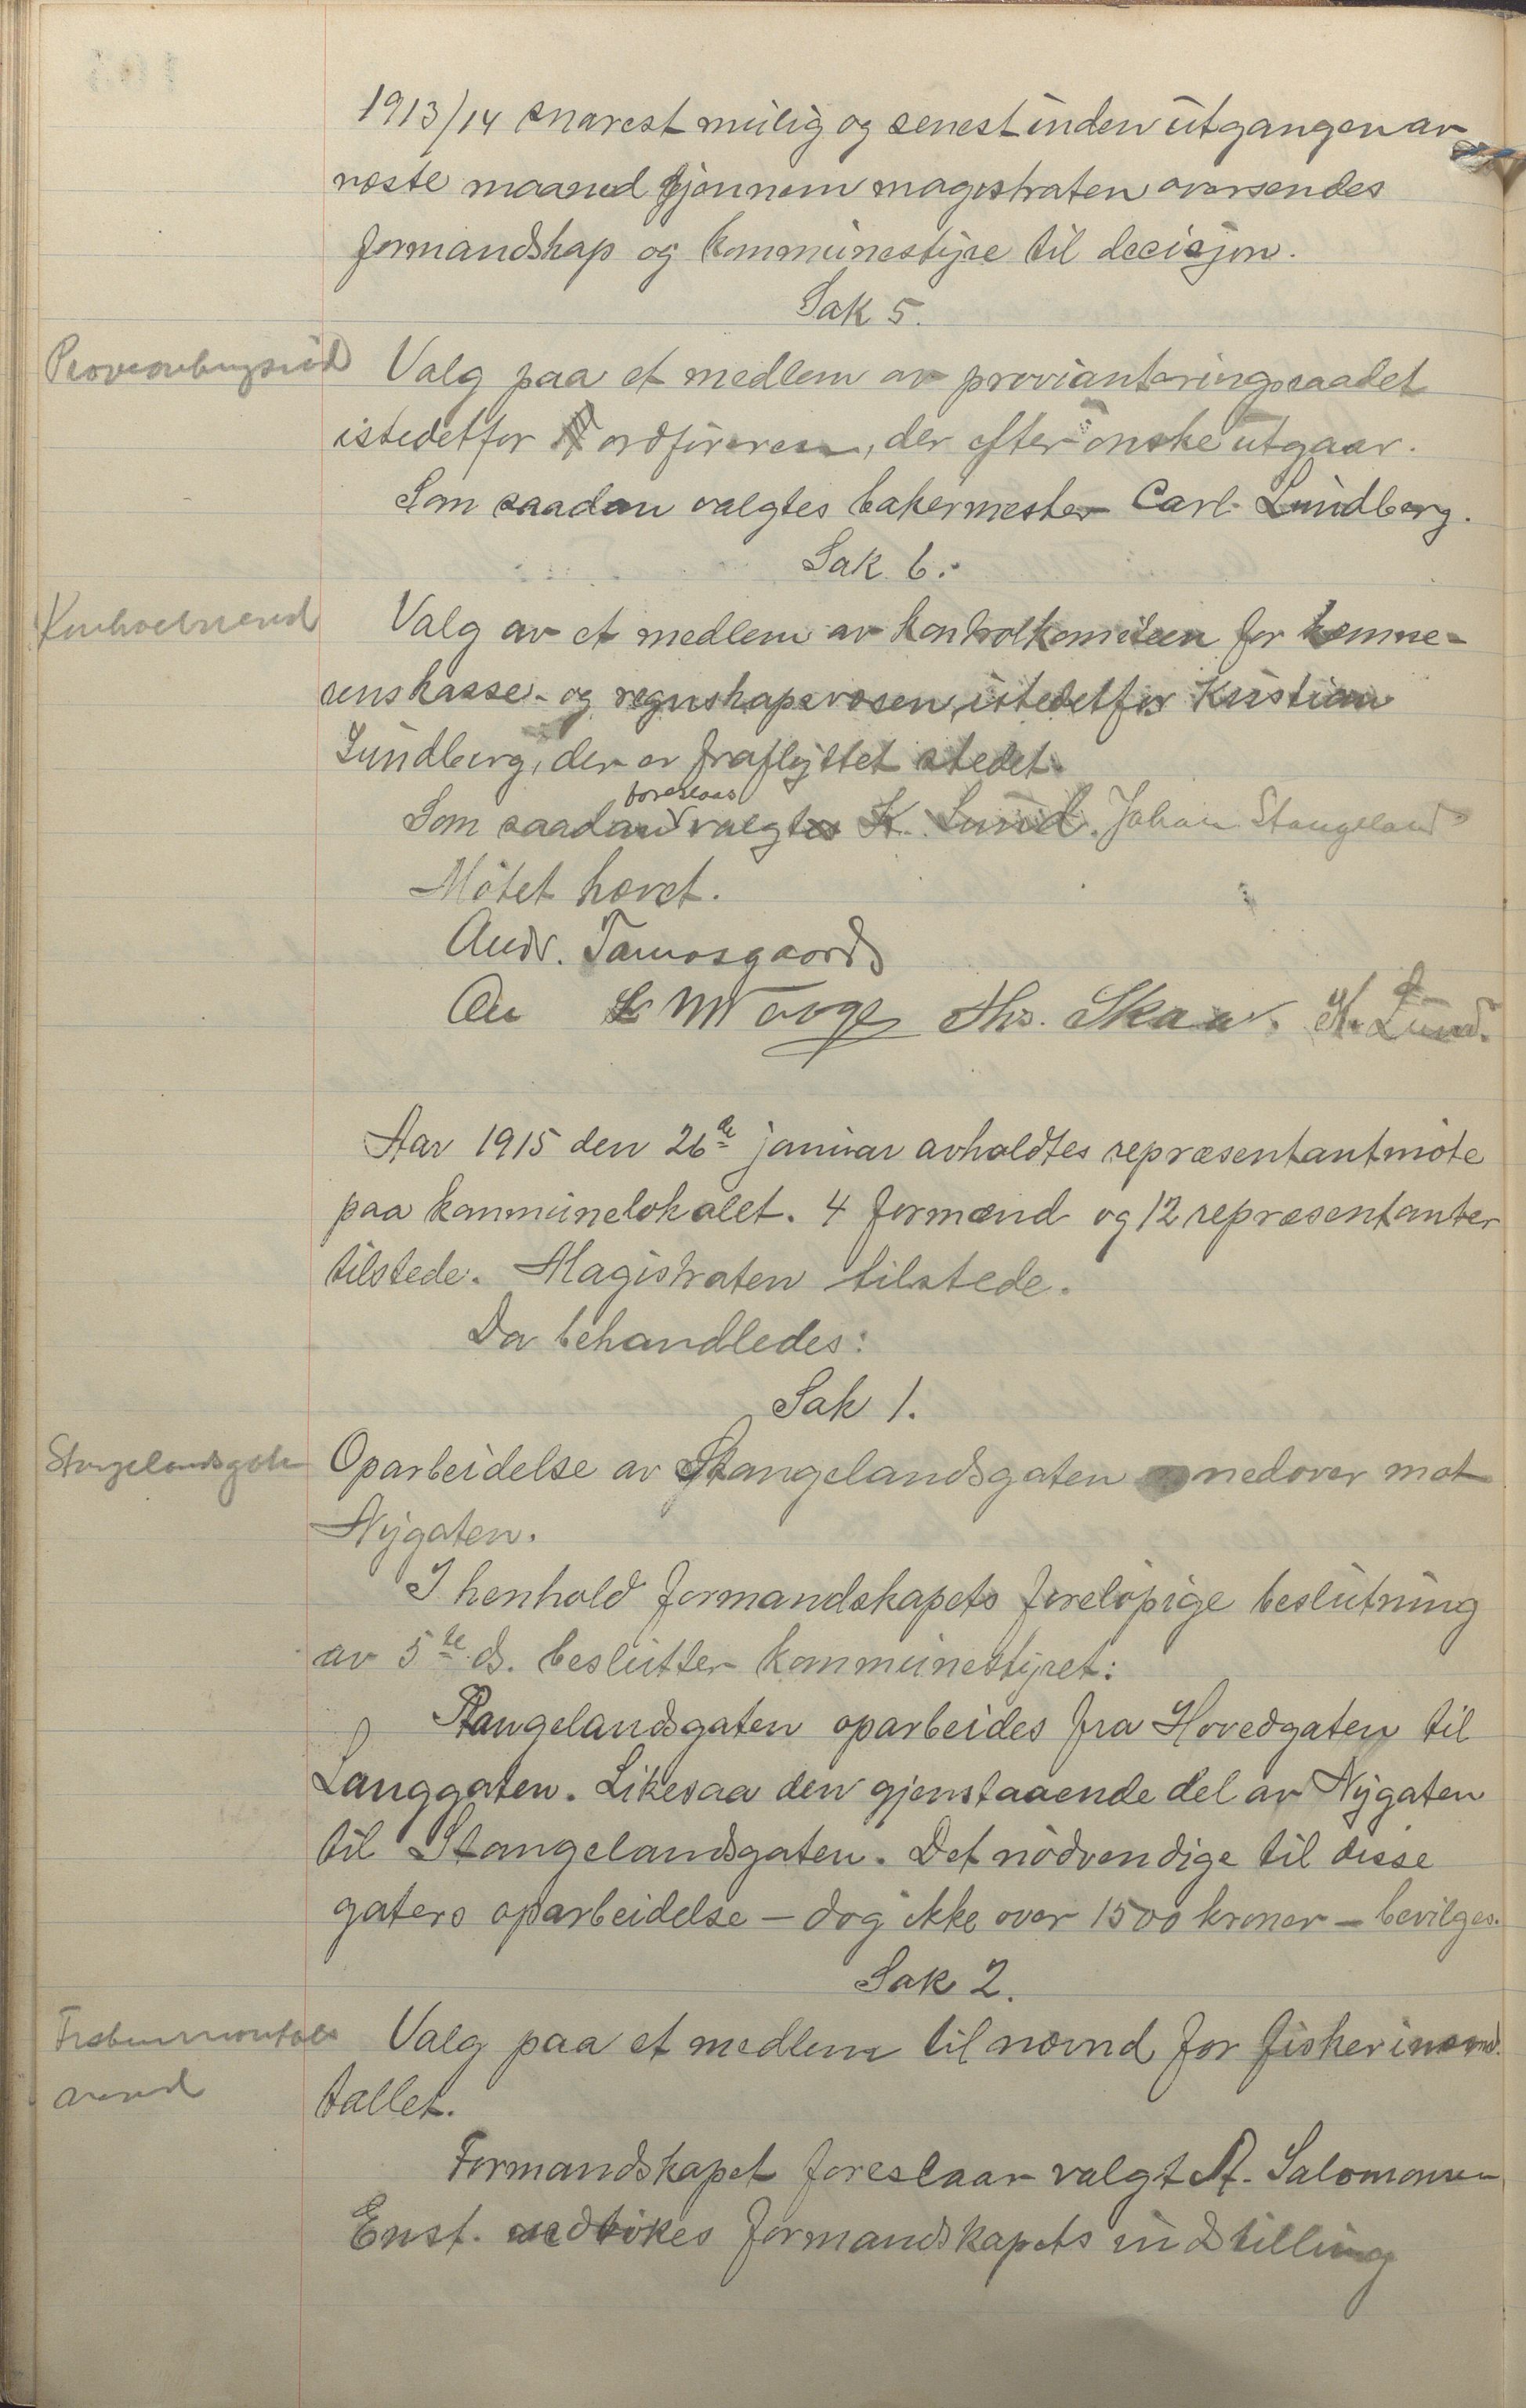 1913/14 snarest mulig og senest inden utgangen av
næste maaned gjennem magistraten oversendes
formandskap og kommunestyre til decisjon.
Sak 5.
Valg paa et medlem av provianteringsraadet
istedetfor ordføreren, der efter ønske utgaar.
Som saadan valgtes bakermester Carl Lundberg.
Sak 6.
Valg av et medlem av kontrolkomiteen for kemne-
renskasse- og regnskapsvæsen, istedetfor Kristian
Lundberg, der er fraflyttet stedet.
foreslaaes
Som saadan valgtes K. Lund. Johan Stangeland
Møtet hævet.
Andr. Tamosgaard
Ths. Skaar. K. Lund.
Aar 1915 den 26de januar avholdtes repræsentantmøte
paa kommunelokalet. 4 formænd og 12 repræsentanter
tilstede. Magistraten tilstede.
Da behandledes:
Sak 1.
Stangelandsgaten
Oparbeidelse av Stangelandsgaten nedover mot
Nygaten.
I henhold formandskapets foreløpige beslutning
av 5te ds. beslutter kommunestyret:
Stangelandsgaten oparbeides fra Hovedgaten til
Langgaten. Likesaa den gjenstaaende del av Nygaten
til Stangelandsgaten. Det nødvendige til disse
gaters oparbeidelse – dog ikke over 1500 kroner – bevilges.
Sak 2.
Valg paa et medlem til nævnd for fiskerimand-
tallet.
Formandskapet foreslaar valgt A. Salomonsen
Enst. vedtokes formandskapets indstilling